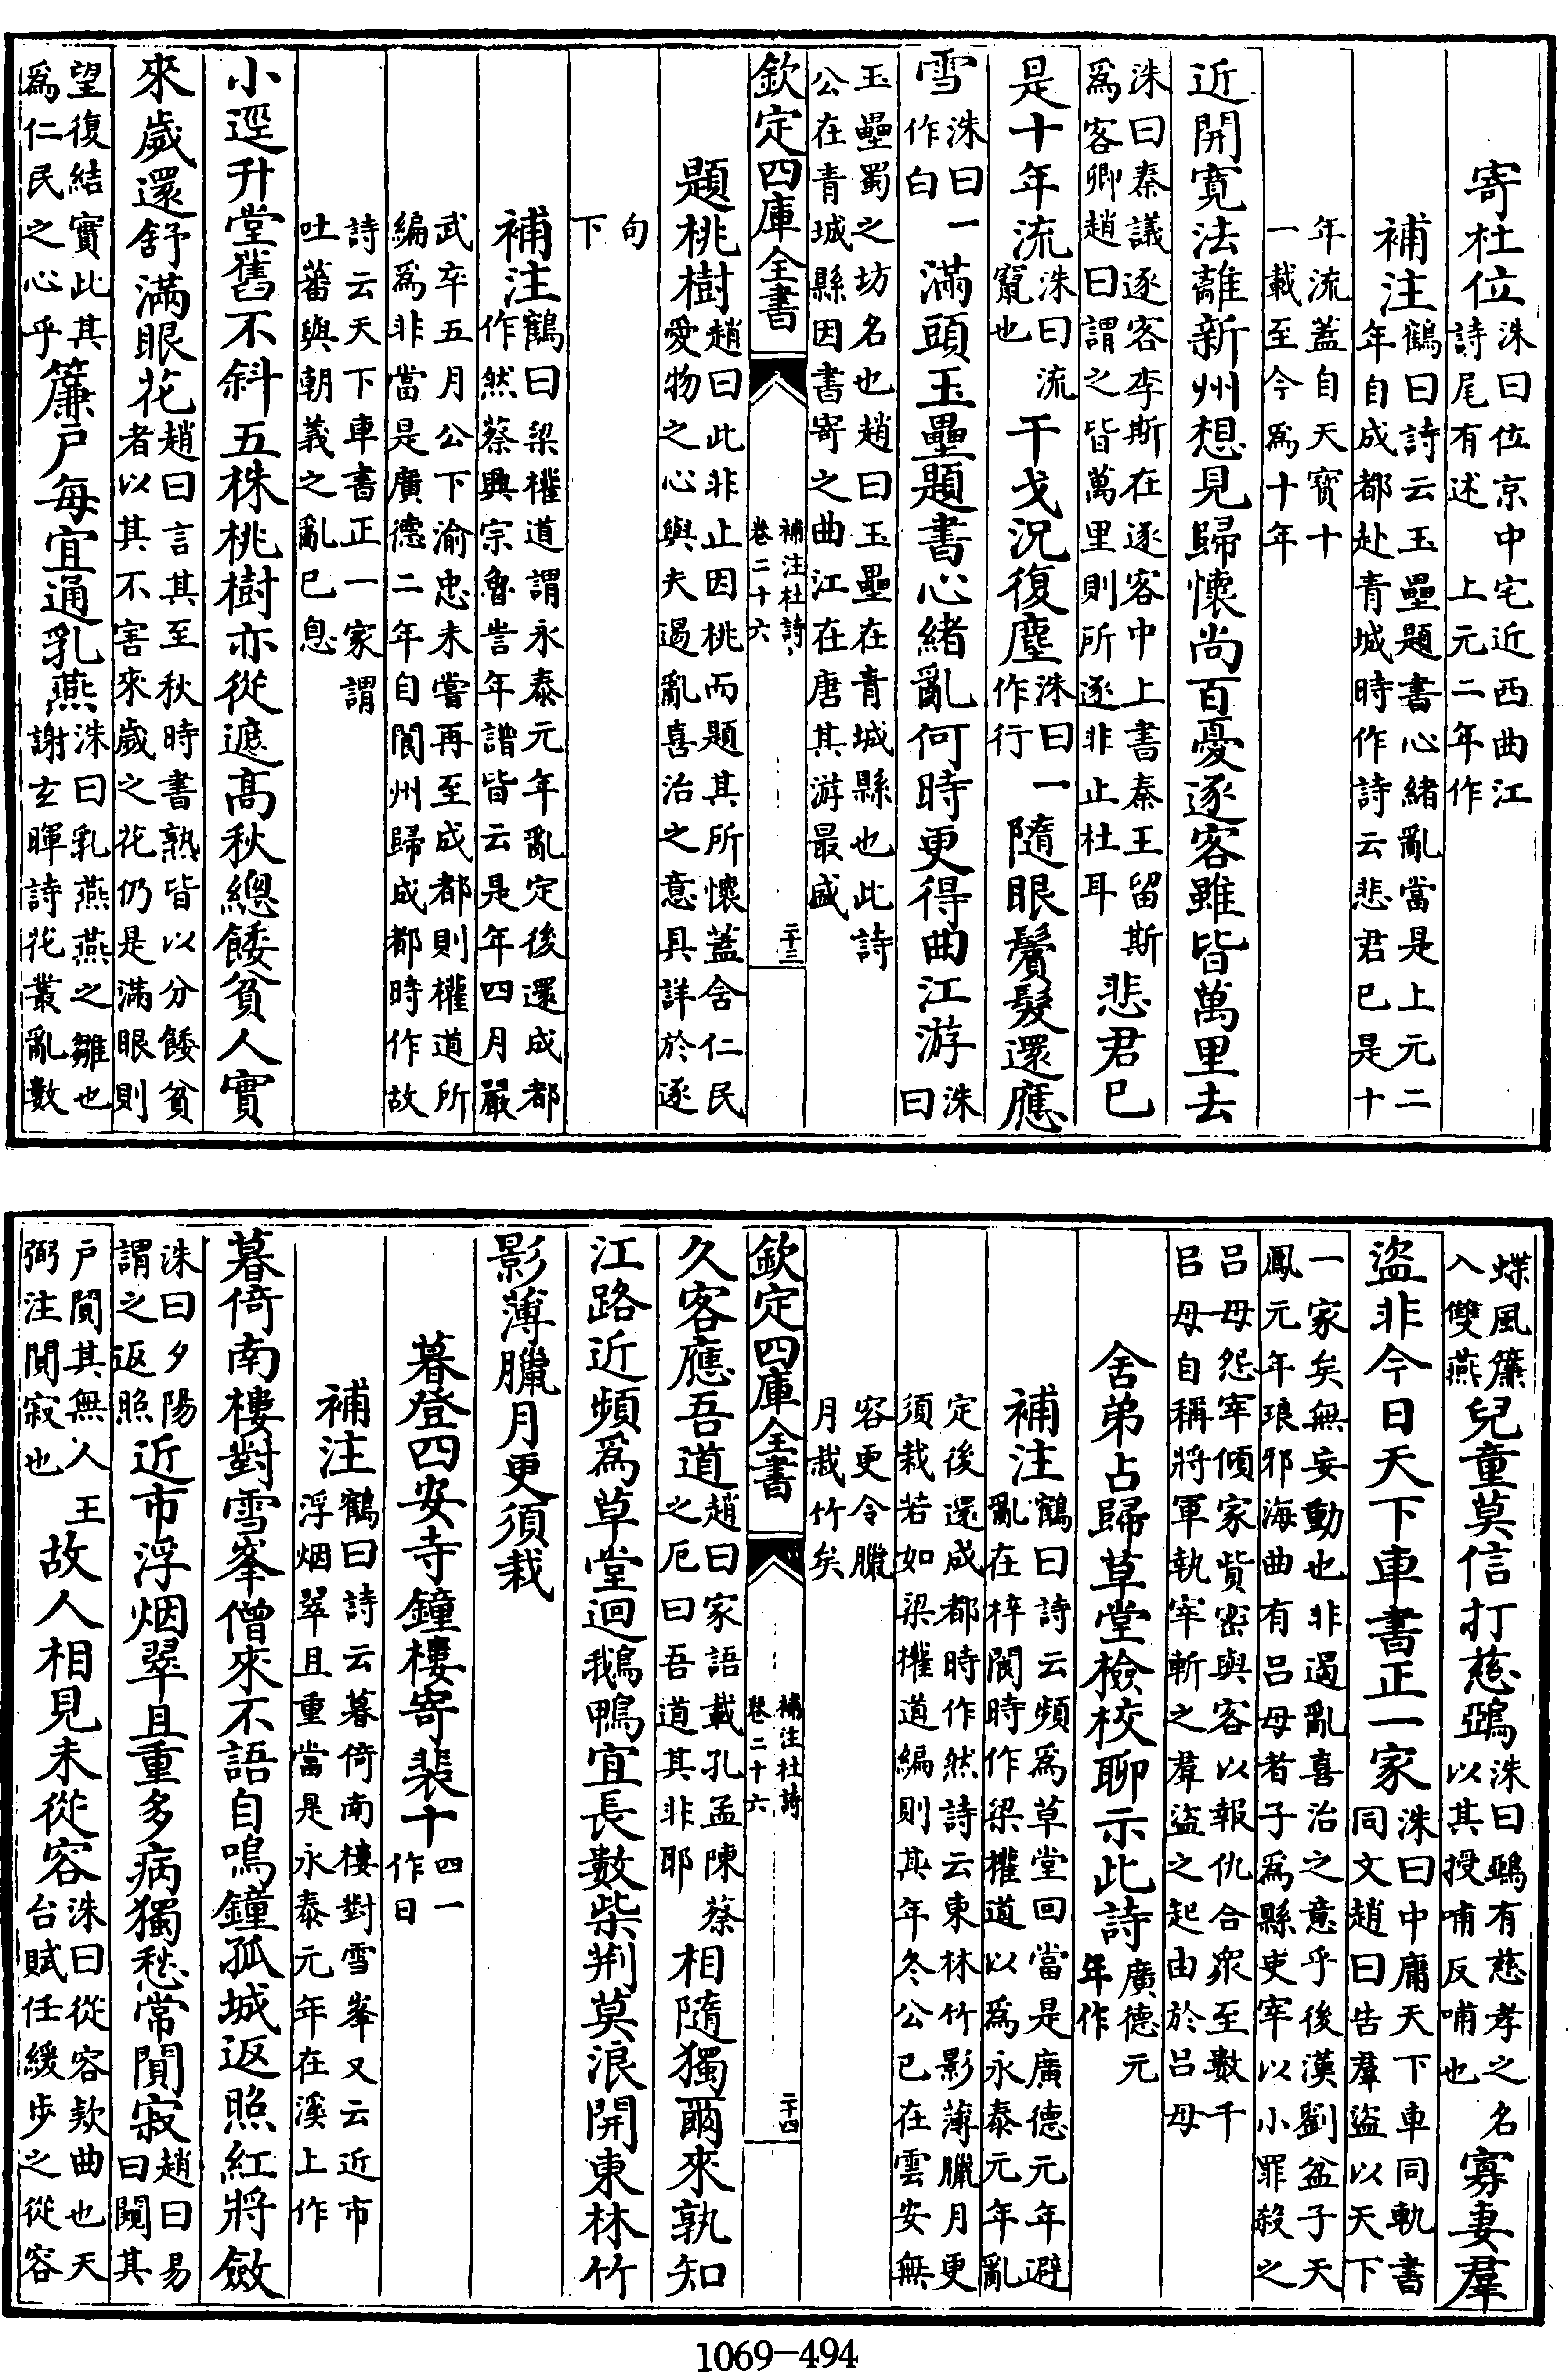 寄杜位洙曰位京中宅近西曲江
詩尾有述 上元二年作
補注鶴曰詩云玉壘題書心緒亂當是上元二
年自成都赴青城時作詩云悲君已是十
年流蓋自天寳十
一載至今為十年
近開寛法離新州想見歸懷尚百憂逐客雖皆萬里去
洙曰秦議逐客李斯在逐客中上書秦王留斯
為客卿趙曰謂之皆萬里則所逐非止杜耳悲君已
是十年流洙曰流竄也干戈況復塵洙曰一作行隨眼鬢髮還應
雪洙曰一作白滿頭玉壘題書心緒亂何時更得曲江游洙曰
玉壘蜀之坊名也趙曰玉壘在青城縣也此詩
公在青城縣因書寄之曲江在唐其游最盛
欽定四庫全書
補注杜詩
卷二十六
二十三
題桃樹趙曰此非止因桃而題其所懷蓋舍仁民
愛物之心與夫遏亂喜治之意具詳於逐
句
下
補注鶴曰梁權道謂永泰元年亂定後還成都
作然蔡興宗魯訔年譜皆云是年四月嚴
武卒五月公下渝忠未嘗再至成都則權道所
編為非當是廣德二年自閬州歸成都時作故
詩云天下車書正一家謂
吐蕃與朝義之亂已息
小逕升堂舊不斜五株桃樹亦從遮髙秋總餧貧人實
來歲還舒滿眼花趙曰言其至秋時書熟皆以分餧貧
者以其不害來歲之花仍是滿眼則
望復結實此其
為仁民之心乎簾戶每宜通乳燕洙曰乳燕燕之雛也
謝玄暉詩花叢亂數
蝶風簾
入雙燕兒童莫信打慈鴉洙曰鴉有慈孝之名
以其授哺反哺也寡妻羣
盜非今日天下車書正一家洙曰中庸天下車同軌書
同文趙曰告羣盜以天下
一家矣無妄動也非遏亂喜治之意乎後漢劉盆子天
鳳元年琅邪海曲有呂母者子為縣吏宰以小罪殺之
呂母怨宰傾家貲密與客以報仇合衆至數千
呂母自稱將軍執宰斬之羣盜之起由於呂母
舍弟占歸草堂檢校聊示此詩廣德元
年作
補注鶴曰詩云頻為草堂回當是廣德元年避
亂在梓閬時作梁權道以為永泰元年亂
定後還成都時作然詩云東林竹影薄臘月更
須栽若如梁權道編則其年冬公已在雲安無
容更令臘
月栽竹矣
欽定四庫全書
補注杜詩
卷二十六
二十四
久客應吾道趙曰家語載孔孟陳蔡
之厄曰吾道其非耶相隨獨爾來孰知
江路近頻為草堂迴鵝鴨宜長數柴荆莫浪開東林竹
影薄臘月更須栽
暮登四安寺鐘樓寄裴十四一
作日
補注鶴曰詩云暮倚南樓對雪峯又云近市
浮烟翠且重當是永泰元年在溪上作
暮倚南樓對雪峯僧來不語自鳴鐘孤城返照紅將斂
洙曰夕陽
謂之返照近市浮烟翠且重多病獨愁常閴寂趙曰易
曰闚其
戶閴其無人王
弼注閴寂也故人相見未從容洙曰從容欵曲也天
台賦任緩步之從容
1069-494